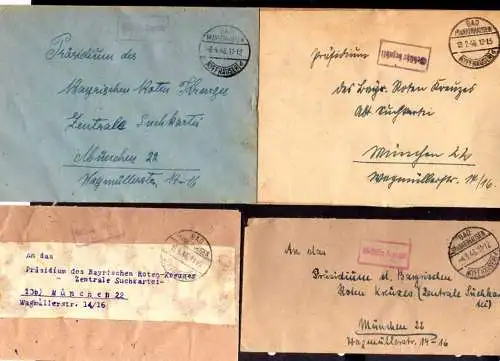 BAD
FRANKENHAUSEN
-8.4.46.12-13
KYFFHÄUSER
Präsidium des
Bayrischen Roten Kreuzes
Zentrale Suchkartei
München 22
Wagmüllerstr. 14-16
BAD
FRANKENHAUSEN
KYFFHÄUSER
Gebühr bezahlt
Präsidium
des Bayr. Roten Kreuzes
Abt. Suchkartei
München 22
Wagmüllerstr. 14/16
BAD
An das
Präsidium des Bayrischen Roten-Kreuzes
Zentrale Suchkartei-
München 22
Wagmüllerstr. 14/16
BAD
FRANKENHAUSEN
KYFFHÄUSER
An das
Präsidium d. Bayrischen
Roten Kreuzes (Zentrale Suchkar-
tei)
München 22
Wagmüllerstr. 14-16